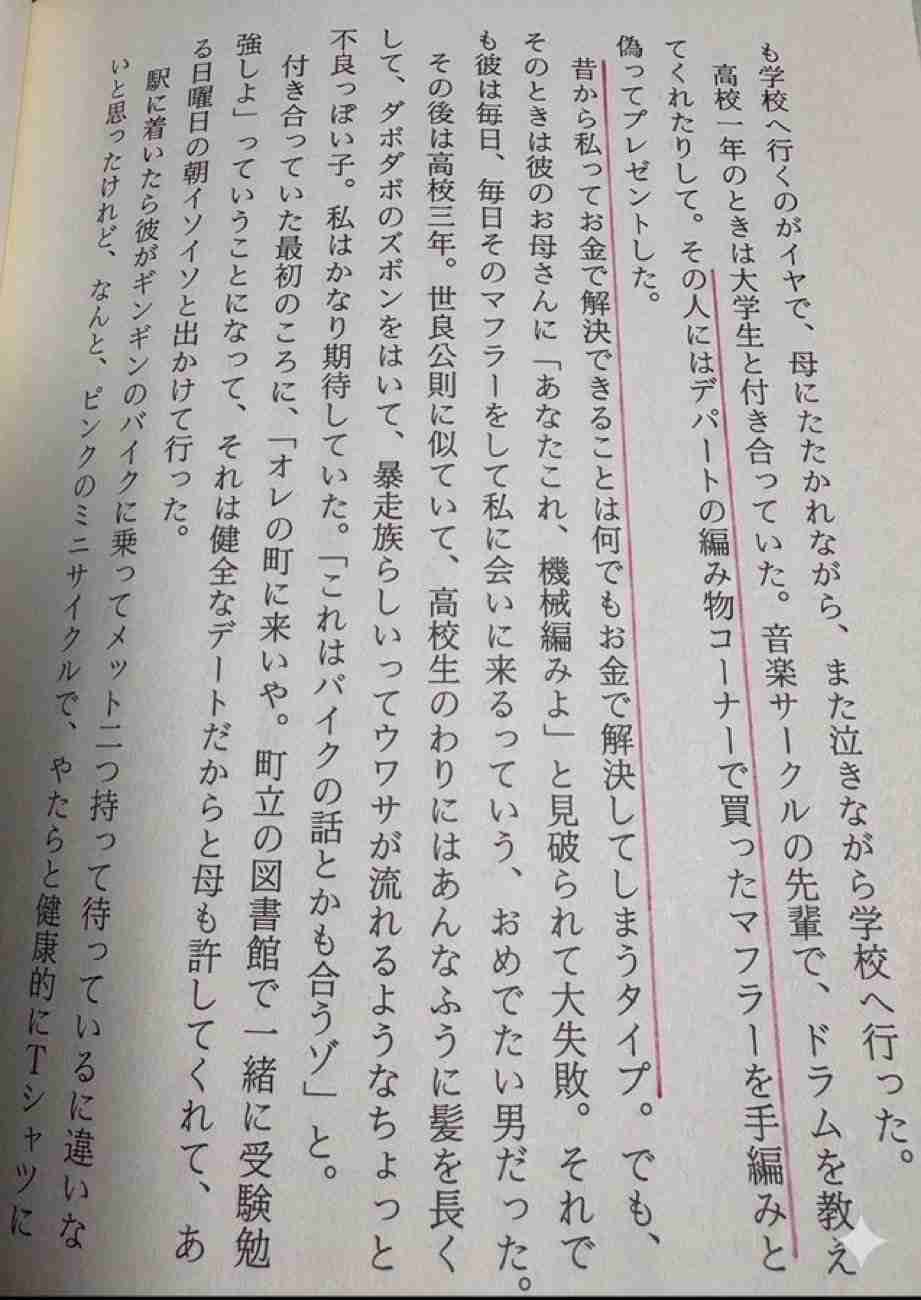 も学校へ行くのがイヤで、母にたたかれながら、また泣きながら学校へ行った。
高校一年のときは大学生と付き合っていた。音楽サークルの先輩で、ドラムを教え
てくれたりして。その人にはデパートの編み物コーナーで買ったマフラーを手編みと
偽ってプレゼントした。
昔から私ってお金で解決できることは何でもお金で解決してしまうタイプ。でも、
そのときは彼のお母さんに「あなたこれ、機械編みよ」と見破られて大失敗。それで
も彼は毎日、毎日そのマフラーをして私に会いに来るっていう、おめでたい男だった。
その後は高校三年。世良公則に似ていて、高校生のわりにはあんなふうに髪を長く
して、ダボダボのズボンをはいて、暴走族らしいってウワサが流れるようなちょっと
不良っぽい子。私はかなり期待していた。「これはバイクの話とかも合うゾ」と。
付き合っていた最初のころに、「オレの町に来いや。町立の図書館で一緒に受験勉
強しよ」っていうことになって、それは健全なデートだからと母も許してくれて、あ
る日曜日の朝イソイソと出かけて行った。
駅に着いたら彼がギンギンのバイクに乗ってメット二つ持って待っているに違いな
いと思ったけれど、なんと、ピンクのミニサイクルで、やたらと健康的にTシャツに